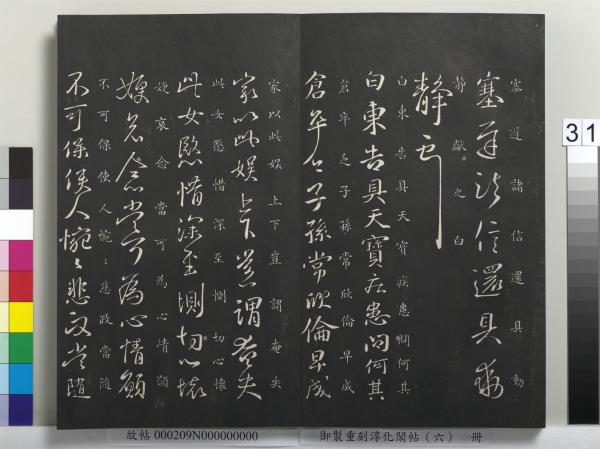 塞近諸信還具動
塞近諸信還具動
靜獻之白
靜
白東告具天寶疾患問何其
白東告具天寶疾患問何其
倉卒乏子孫常欣倫早成
倉卒乏子孫常欣倫早成
家以此娛上下豈謂奄失
家以此娛上下豈謂奄失
此女愍惜深至惻切心懷
此女愍惜深至惻切心懷
哀念當可為心情願
哀念當可為心情願
不可保使人惋々悲政當隨
不可保使人惋々悲政當隨
31
故帖 000209N000000000
御製重刻淳化閣帖（六） 冊